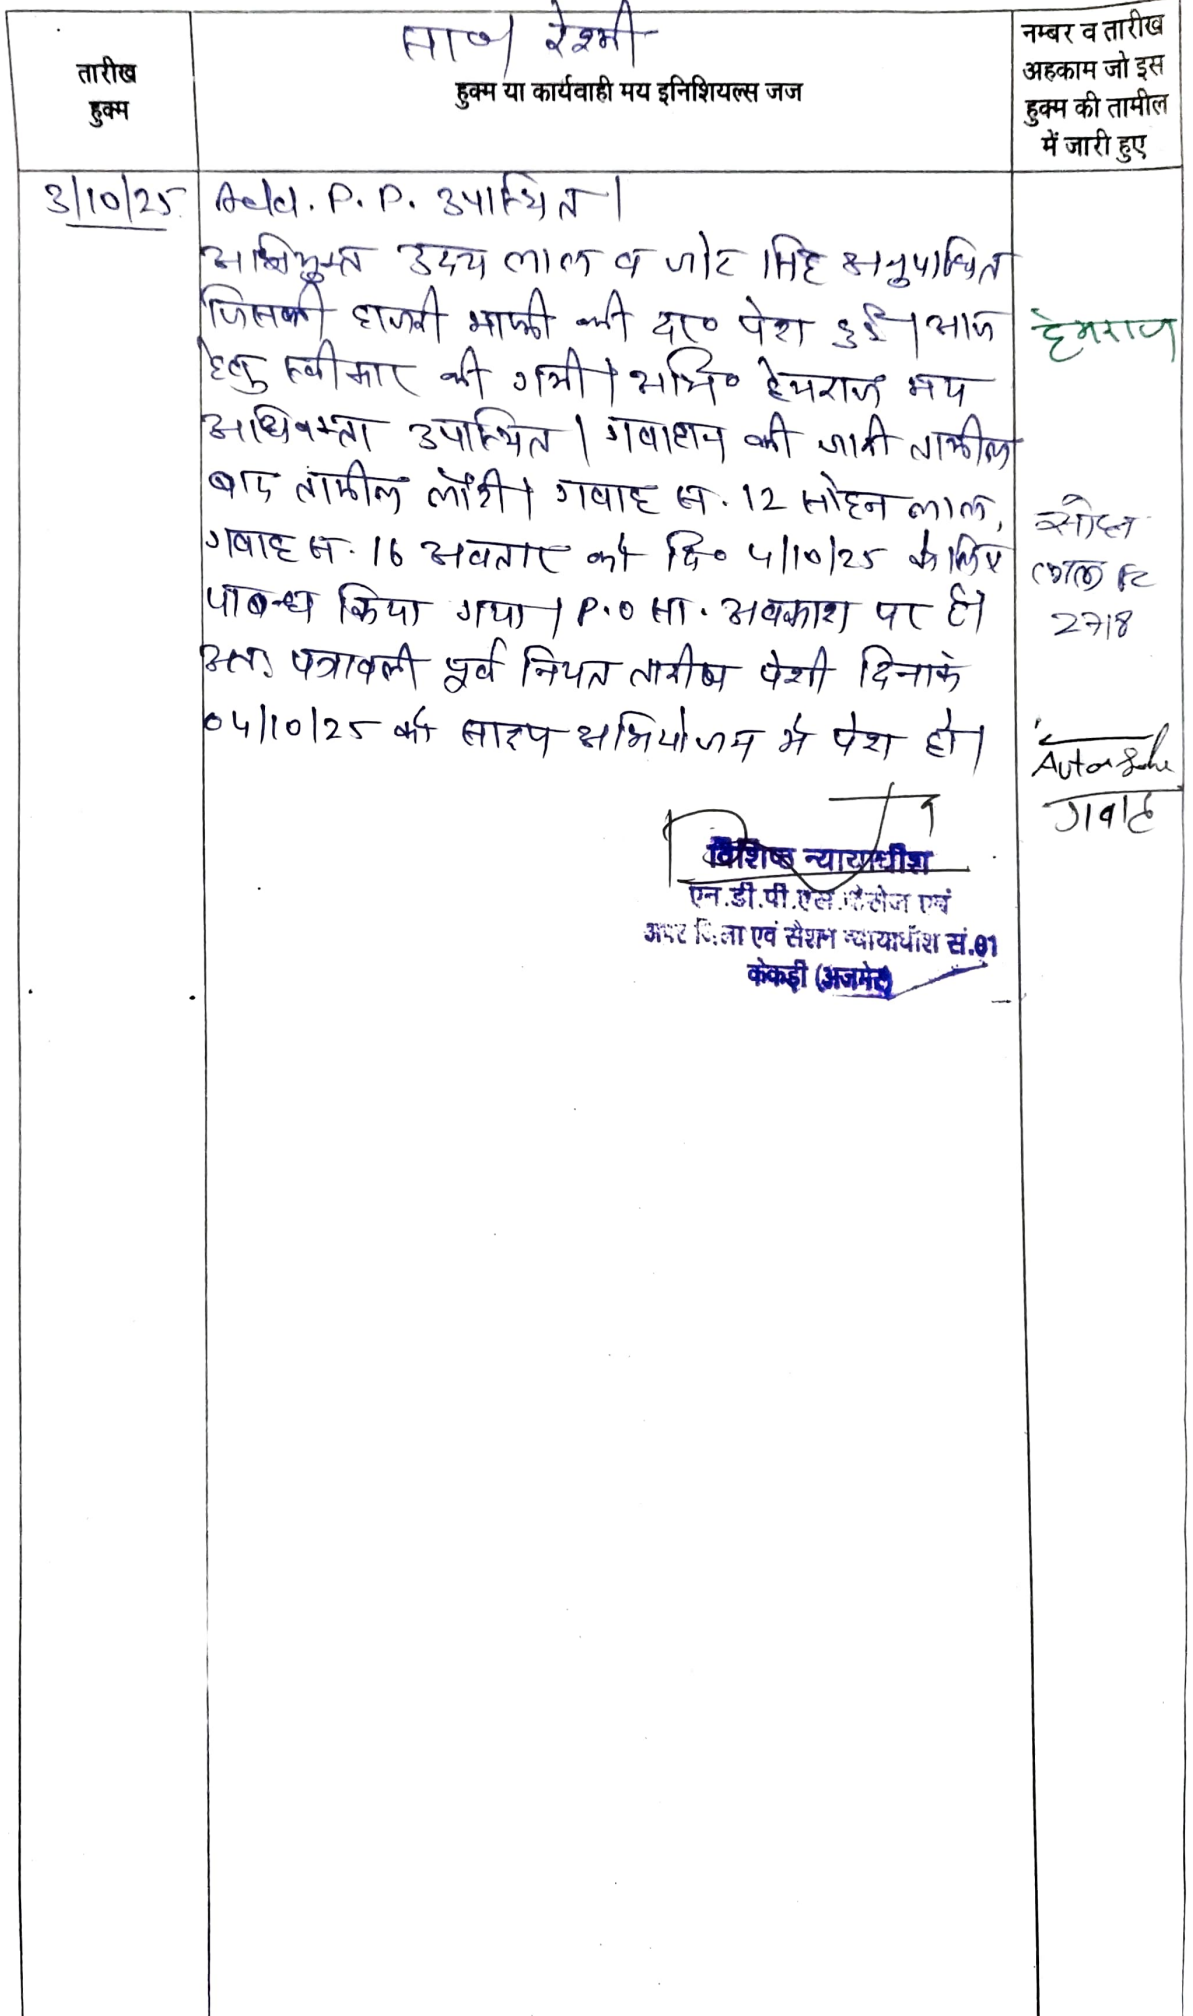 साण रेश्मी
तारीख
हुक्म
हुक्म या कार्यवाही मय इनिशियल्स जज
नम्बर व तारीख
अहकाम जो इस
हुक्म की तामील
में जारी हुए
3/10/25
Add. P.P. उपस्थित।
अभियुक्त उदय लाल व जोर सिंह अनुपस्थित
जिसकी हाजरी माफी की दर० पेश हुई। आज
हेतु स्वीकार की गयी। अभि० हेमराज मय
अधिवक्ता उपस्थित। गवाहान की जारी तामील
बाद तामील लौटी। गवाह स. 12 सोहन लाल,
गवाह स. 16 अवतार को दि० 4/10/25 के लिए
पाबन्ध किया गया। P.O सा. अवकाश पर है।
अतः पत्रावली पूर्व नियत तारीख पेशी दिनांक
04/10/25 को साक्ष्य अभियोजन में पेश हो।
हेमराज
सोहन
लाल HC
2718
गवाह
विशिष्ठ न्यायाधीश
एन.डी.पी.एस. केसेज एवं
अपर जिला एवं सैशन न्यायाधीश सं.01
केकड़ी (अजमेर)